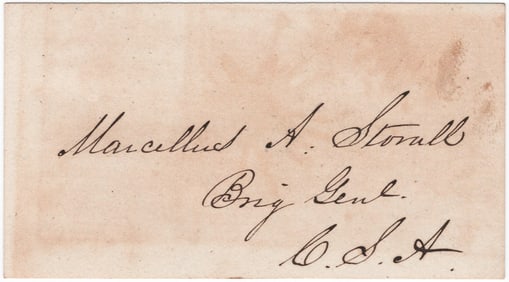 Marcellus A. Stovall
Brig Genl.
C. S. A.